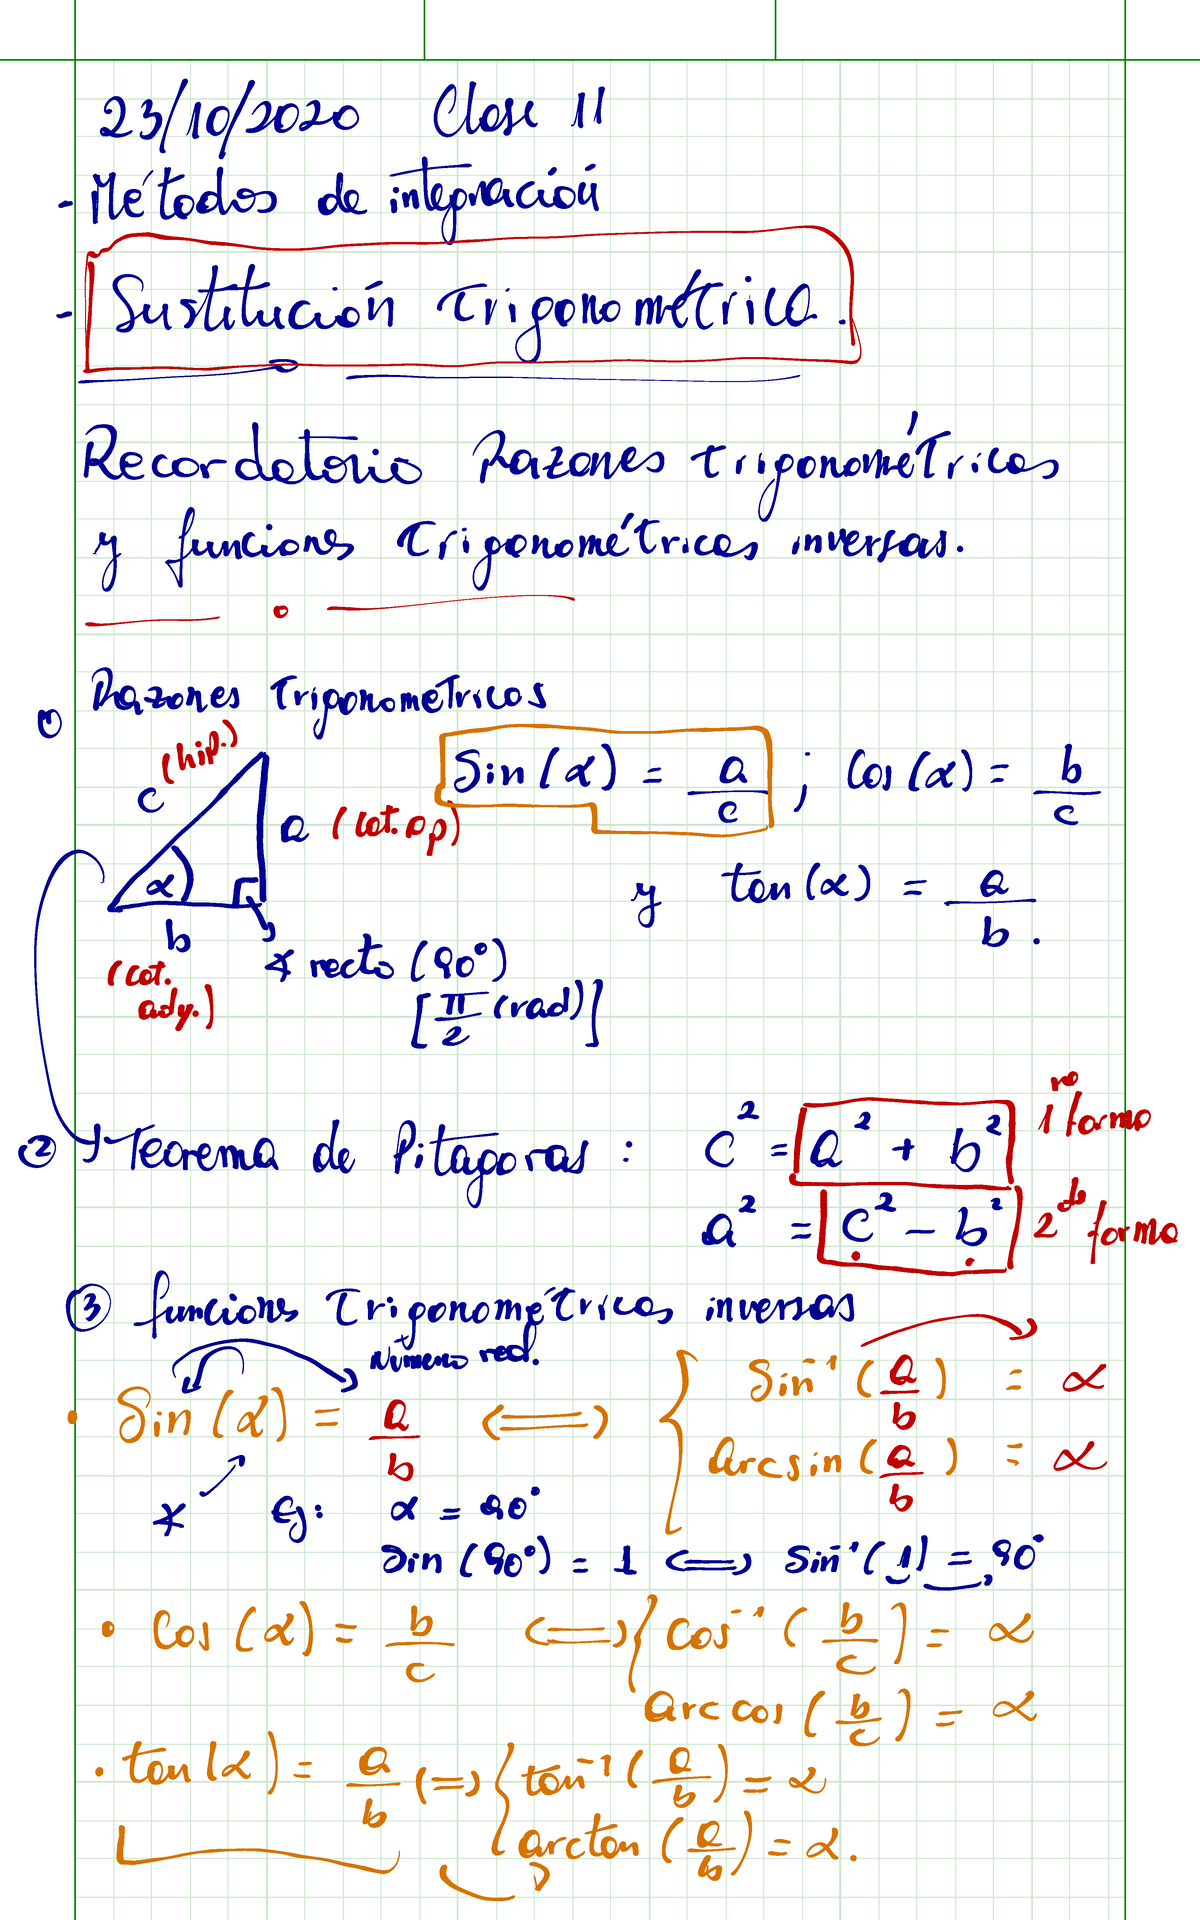 23/10/2020 Clase 11
- Métodos de integración
- Sustitución Trigonométrica.
Recordatorio Razones trigonométricas
y funciones trigonométricas inversas.
① Razones Trigonometricas
c (hip.)
a (cat. op)
α
b
(cat. ady.)
∡ recto (90°)
[π/2 (rad)]
Sin(α) = a/c ; Cos(α) = b/c
y tan(α) = a/b.
② Teorema de Pitágoras : c² = a² + b² 1ra forma
a² = c² - b² 2da forma
③ funciones Trigonométricas inversas
Número real.
• Sin(α) = a/b ⟺ { Sin⁻¹(a/b) = α
arcsin(a/b) = α
∡ Ej: α = 90°
Sin(90°) = 1 ⟺ Sin⁻¹(1) = 90°
• Cos(α) = b/c ⟺ { Cos⁻¹(b/c) = α
arccos(b/c) = α
• tan(α) = a/b ⟺ { tan⁻¹(a/b) = α
arctan(a/b) = α.